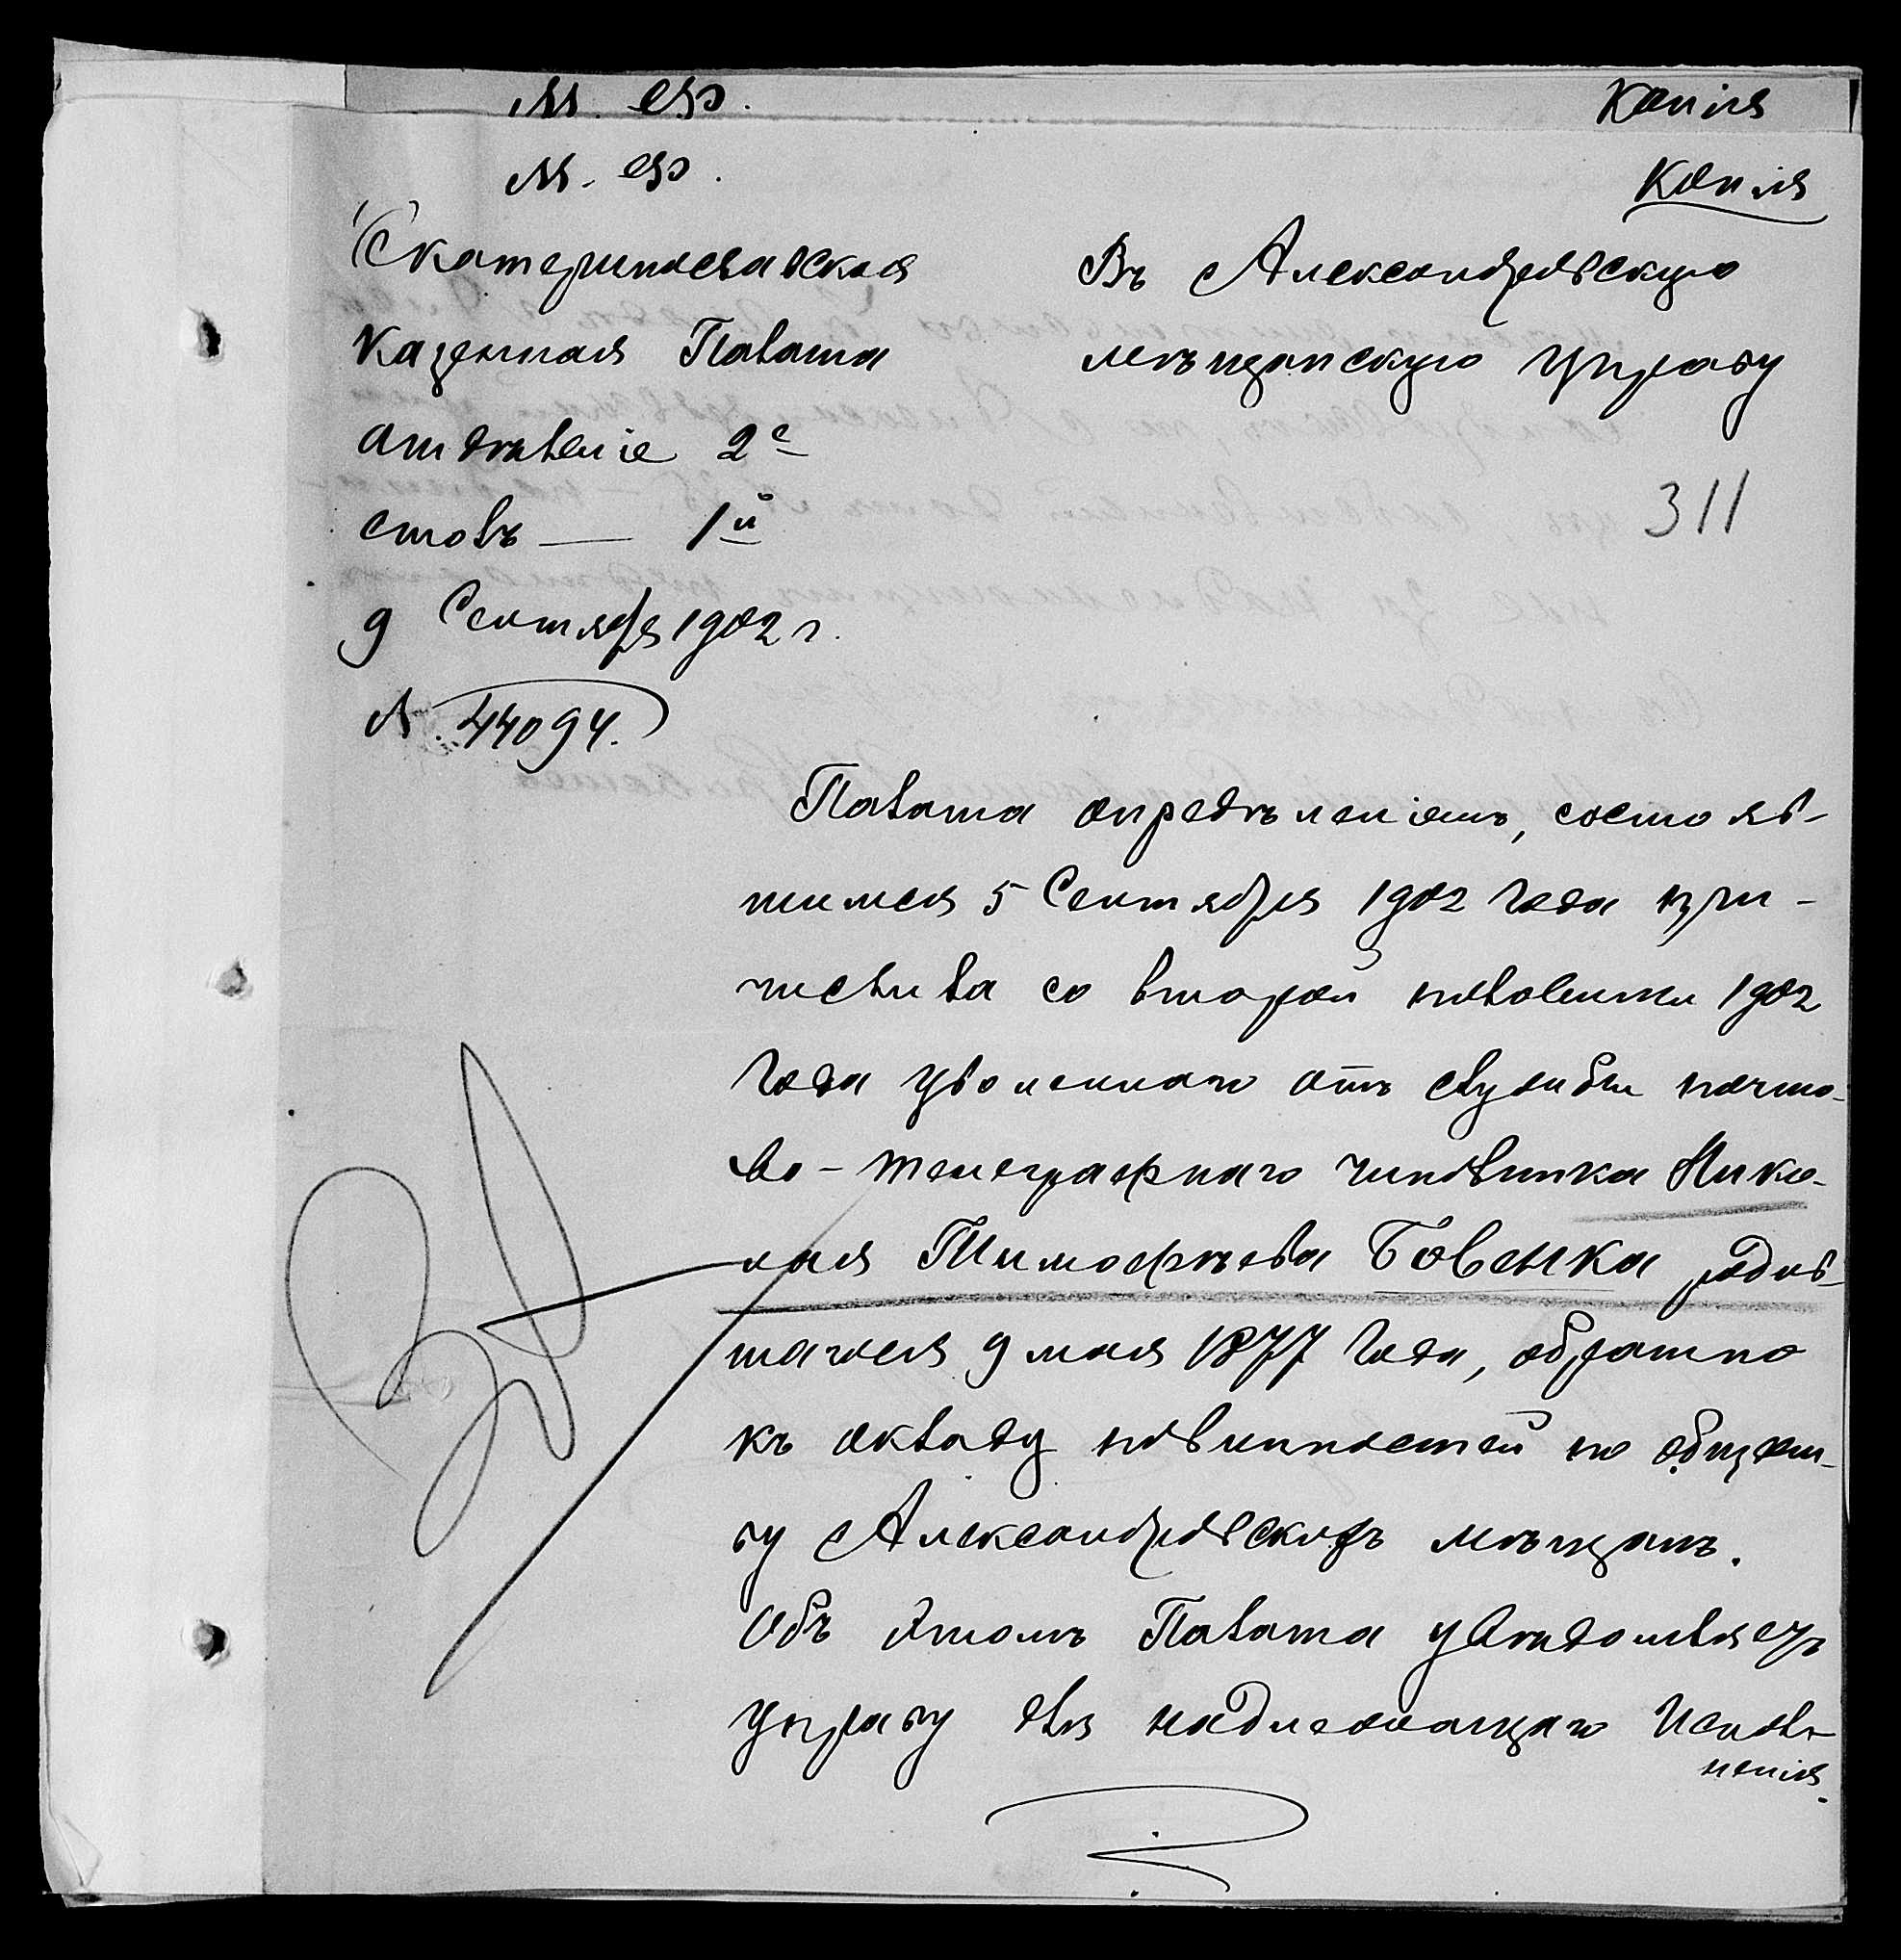 М. Ф. Копія
М. Ф. Копія
Екатеринославская
Казенная Палата
отдѣленіе 2е
столъ — 1й
9 Сентября 1902 г.
№ 44094.
Въ Александровскую
мѣщанскую управу
311
Палата опредѣленіемъ, состояв-
шимся 5 Сентября 1902 года при-
числила со второй половины 1902
года уволеннаго отъ службы почто-
во-телеграфнаго чиновника Нико-
лая Тимофѣева Бовенка родив-
шагося 9 мая 1877 года, обратно
къ окладу повинностей по общест-
ву Александровскихъ мѣщанъ.
Объ этомъ Палата увѣдомляетъ
управу для надлежащаго испол-
ненія.